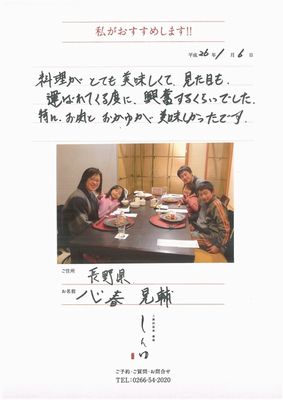 私がおすすめします!!
平成 26 年 1 月 6 日
料理がとても美味しくて、見た目も、
運ばれてくる度に、興奮するくらいでした。
特に、お肉とおかゆが美味しかったです。
ご住所 長野県
お名前 心春 晃輔
しんゆ
ご予約・ご質問・お問合せ
TEL:0266-54-2020